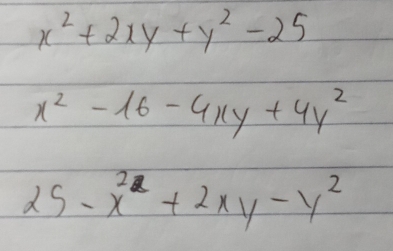 x² + 2xy + y² - 25
x² - 16 - 4xy + 4y²
25 - x² + 2xy - y²